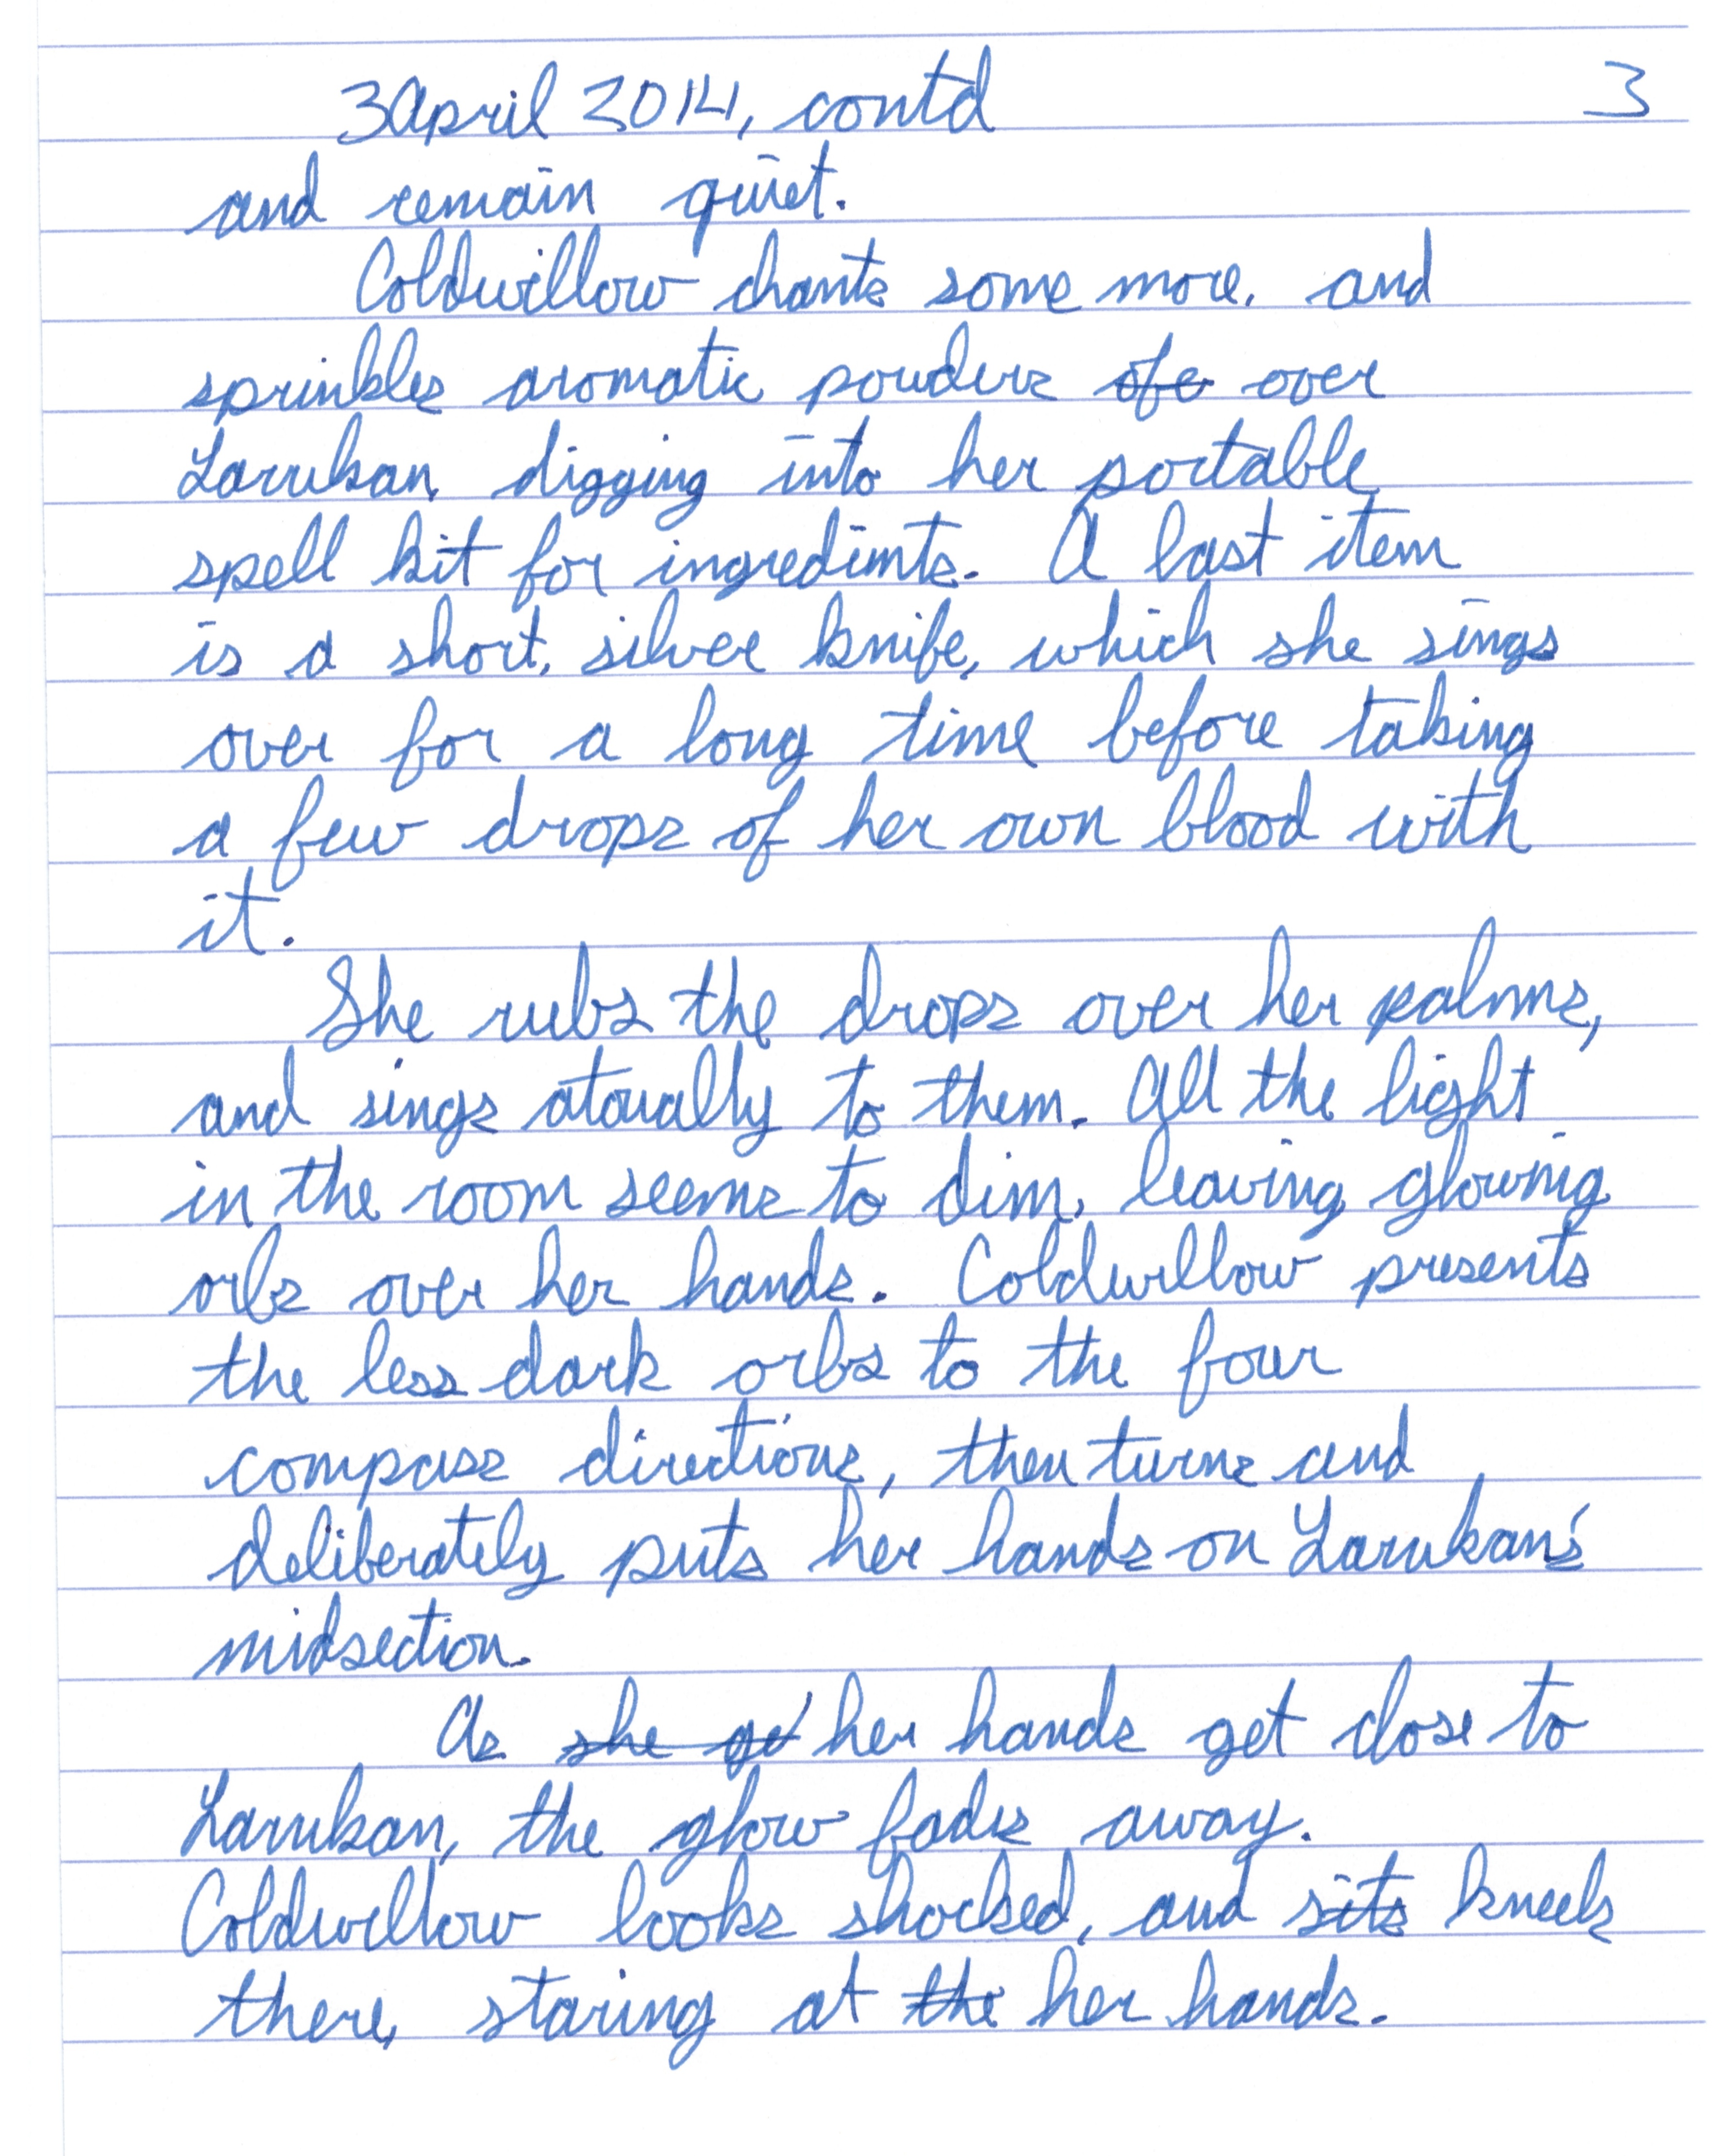 3 April 2014, contd 3
and remain quiet.
Coldwillow chants some more, and
sprinkles aromatic powders ofe over
Larukan, digging into her portable
spell kit for ingredients. A last item
is a short, silver knife, which she sings
over for a long time before taking
a few drops of her own blood with
it.
She rubs the drops over her palms,
and sings atonally to them. All the light
in the room seems to dim, leaving glowing
orbs over her hands. Coldwillow presents
the less dark orbs to the four
compass directions, then turns and
deliberately puts her hands on Larukan's
midsection.
As she ge her hands get close to
Larukan, the glow fades away.
Coldwillow looks shocked, and sits kneels
there, staring at the her hands.